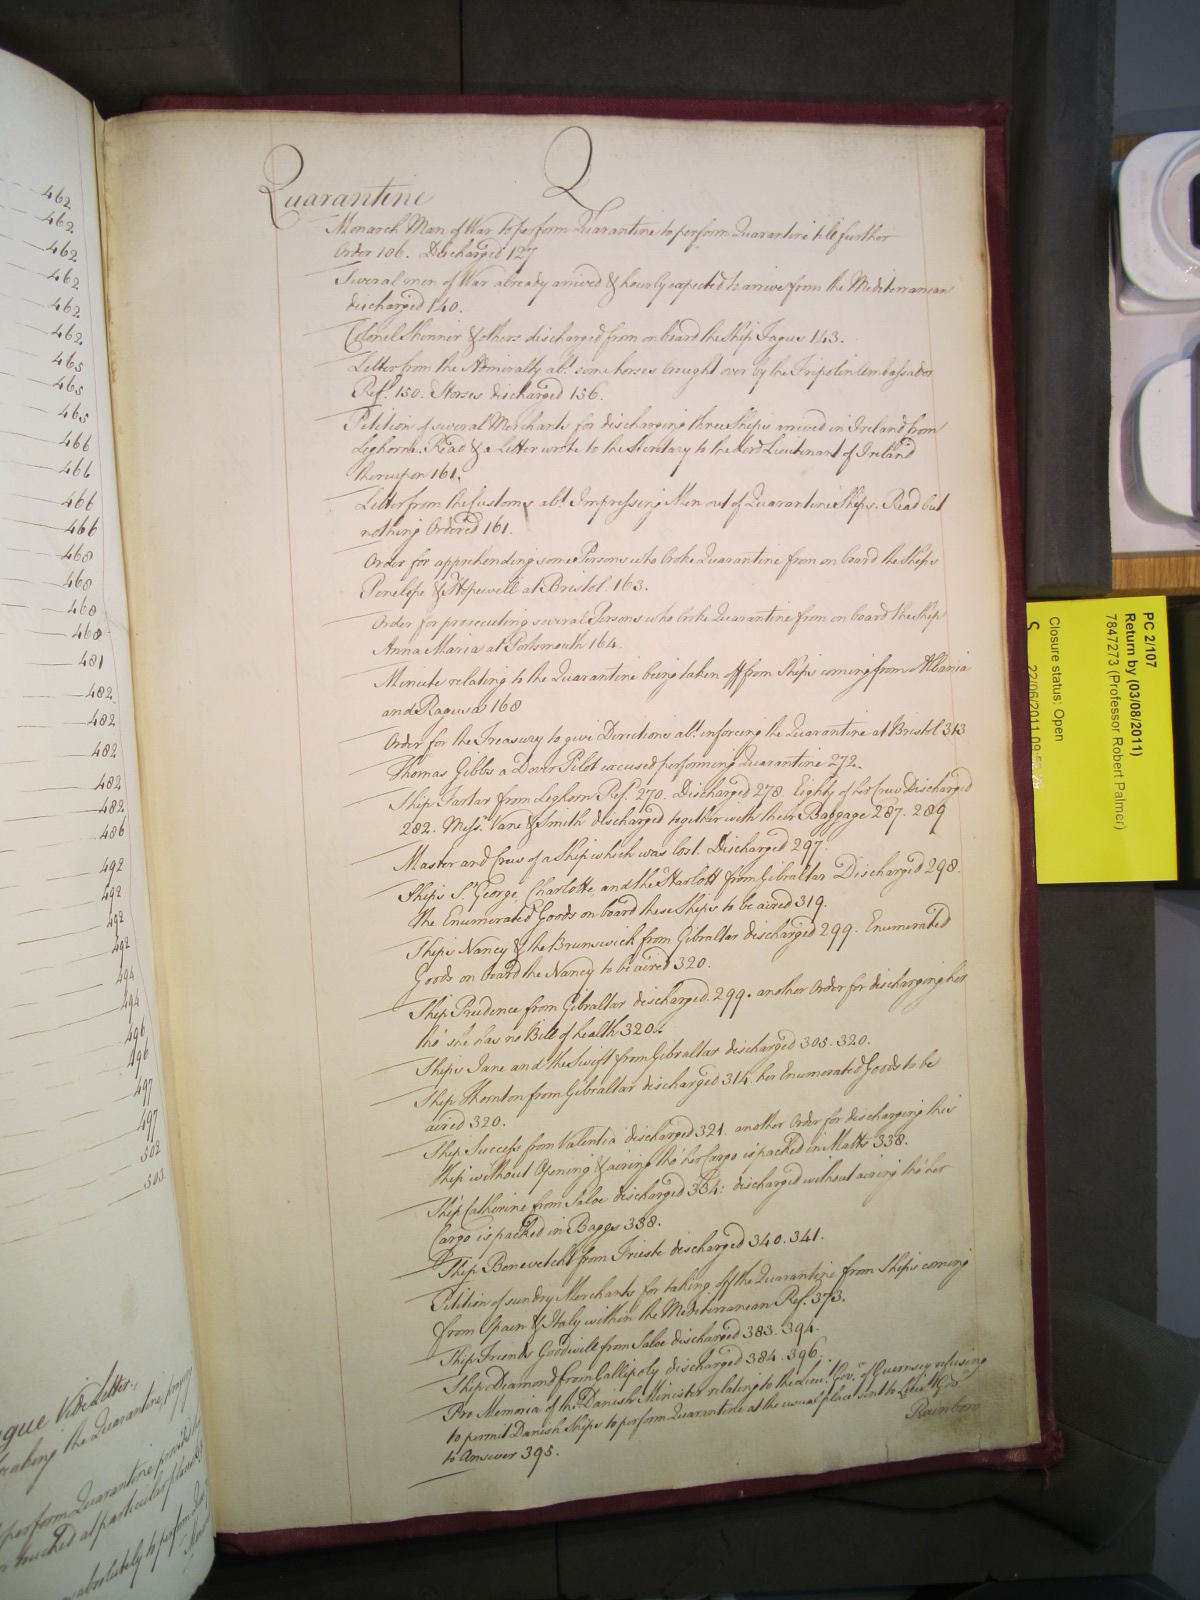 462
462
462
462
462
462
465
465
465
466
466
466
466
468
468
468
468
481
482
482
482
482
482
486
492
492
492
492
494
494
496
496
497
497
502
503
Vide Letter
the Quarantine
perform Quarantine
at particular
absolutely to perform
Q
Quarantine
Monarch Man of War to perform Quarantine to perform Quarantine till further
Order 106. Discharged 127
Several men of War already arrived & hourly expected to arrive from the Mediterranean
discharged 140.
Colonel Skinner & others discharged from on board the Ship Tagus 143.
Letter from the Admiralty abt. some horses brought over by the Tripolin Ambassador
Ref. 150. Horses discharged 156.
Petition of several Merchants for discharging three Ships arrived in Ireland from
Leghorn. Read & a Letter wrote to the Secretary to the Lord Lieutenant of Ireland
thereupon 161.
Letter from the Customs abt. Impressing Men out of Quarantine Ships. Read but
nothing Ordered 161.
Order for apprehending some Persons who broke Quarantine from on board the Ships
Penelope & Hopewell at Bristol. 163.
Order for prosecuting several Persons who broke Quarantine from on board the Ship
Anna Maria at Portsmouth 164.
Minute relating to the Quarantine being taken off from Ships coming from Albania
and Ragusa 168
Order for the Treasury to give Directions abt. inforcing the Quarantine at Bristol 313
Thomas Gibbs a Dover Pilot excused performing Quarantine 272.
Ship Tartar from Leghorn Ref. 270. Discharged 278 Eighty of her Crew Discharged
282. Messrs. Vane & Smith discharged together with their Baggage 287. 289
Master and Crew of a Ship which was lost. Discharged 297.
Ships St. George, Charlotte, and the Harlott from Gibraltar Discharged 298.
the Enumerated Goods on board these Ships to be aired 319.
Ships Nancy & the Brunswick from Gibraltar discharged 299. Enumerated
Goods on board the Nancy to be aired 320.
Ship Prudence from Gibraltar discharged 299. another Order for discharging her
tho' she has no Bill of health 320.
Ships Jane and the Swift from Gibraltar discharged 305. 320.
Ship Thornton from Gibraltar discharged 314. her Enumerated Goods to be
aired 320.
Ship Success from Valentia discharged 321. another Order for discharging this
Ship without Opening & airing tho' her Cargo is packed in Matts 338.
Ship Catherine from Saloe discharged 334: discharged without airing tho' her
Cargo is packed in Baggs 338.
Ship from Trieste discharged 340. 341.
Petition of sundry Merchants for taking off the Quarantine from Ships coming
from Spain & Italy within the Mediterranean Ref. 373.
Ship Friends Goodwill from Saloe discharged 383. 394.
Ship Diamond from Gallipoly discharged 384. 396.
Pro Memoria of the Danish Minister relating to the Lieut. Govr. of Guernsey refusing
to permit Danish Ships to perform Quarantine at the usual place sent to Lieut. Govr.
to Answer 395.
PC 2/107
Return by (03/08/2011)
7847273 (Professor Robert Palmer)
Closure status: Open
S
22/06/2011